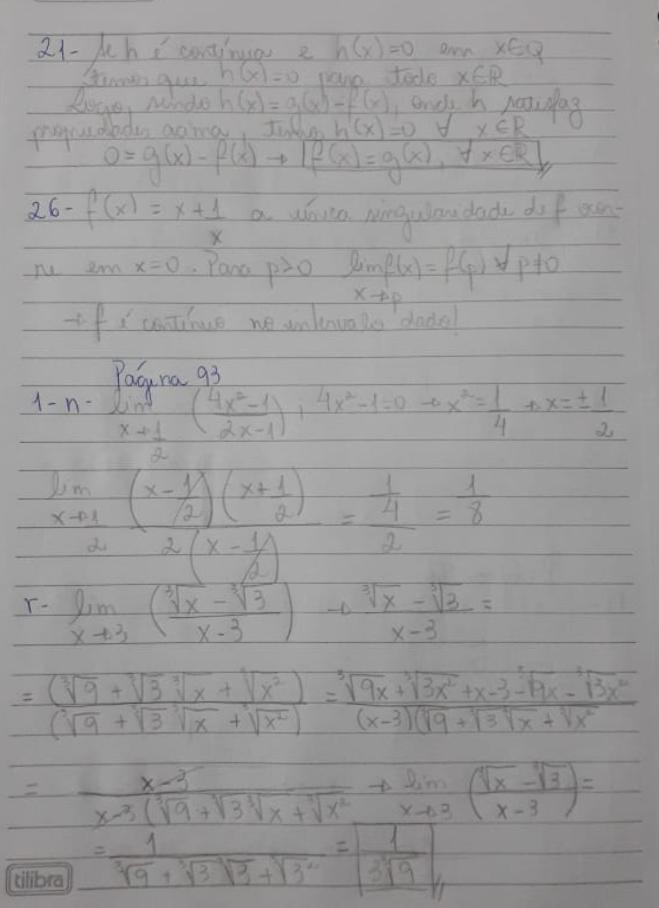 21- Se h é contínua e h(x)=0 em x∈Q
temos que h(x)=0 para todo x∈R
Logo, sendo h(x)=g(x)-f(x), onde h satisfaz
propriedades acima, temos h(x)=0 ∀ x∈R
0=g(x)-f(x) → f(x)=g(x), ∀x∈R
26- f(x) = x+1/x a única singularidade de f ocor-
re em x=0. Para p>0 lim x→p f(x)=f(p) ∀ p≠0
→ f é contínuo no intervalo dado!
Página 93
1-n- lim x→1/2 (4x²-1/2x-1); 4x²-1=0 → x²=1/4 → x=±1/2
lim x→1/2 (x-1/2)(x+1/2)/2(x-1/2) = 1/4/2 = 1/8
r- lim x→3 (∛x-∛3/x-3) → ∛x-∛3/x-3 =
= (∛9+∛3∛x+∛x²)/(∛9+∛3∛x+∛x²) = ∛9x+∛3x²+x-3-∛9x-∛3x²/(x-3)(∛9+∛3∛x+∛x²
= x-3/x-3(∛9+∛3∛x+∛x² → lim x→3 (∛x-∛3/x-3)=
= 1/∛9+∛3∛3+∛3² = 1/3∛9
tilibra